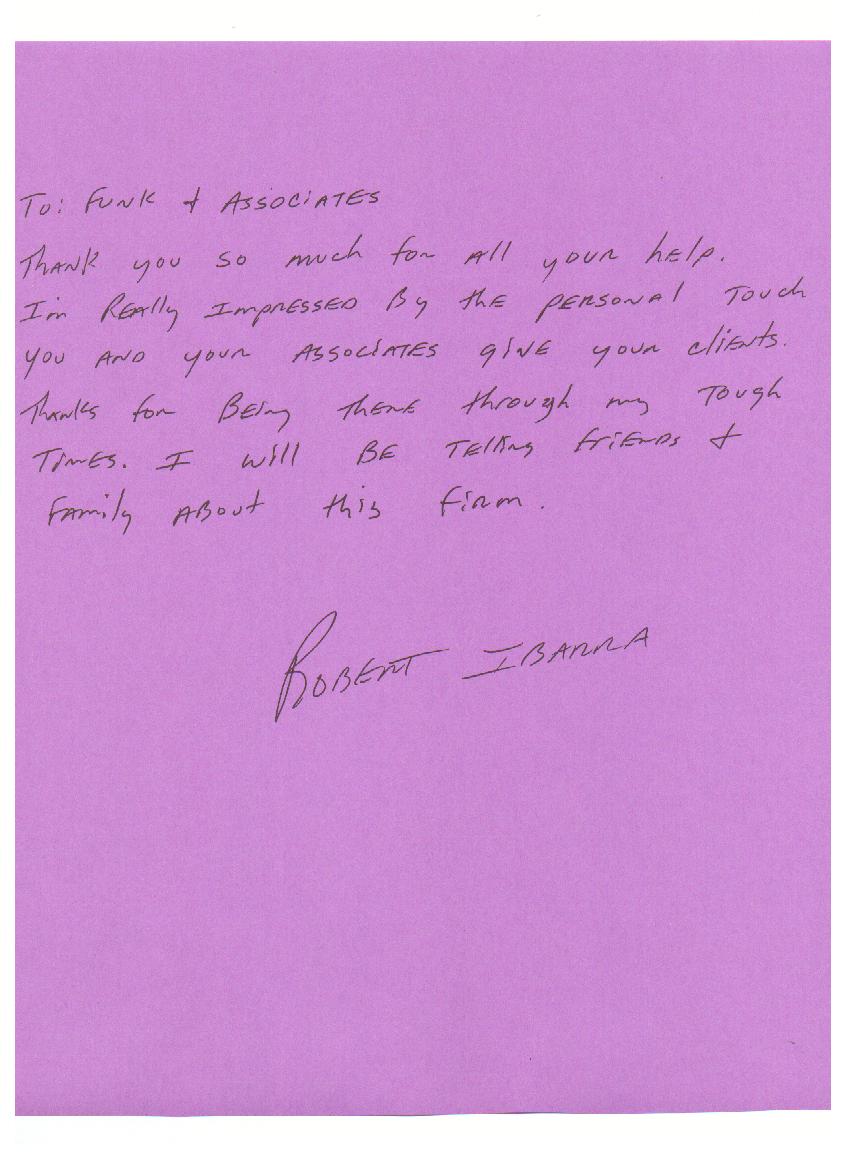 To: Funk & Associates
Thank you so much for all your help.
I'm Really Impressed By the personal Touch
you and your Associates give your clients.
Thanks for Being there through my Tough
Times. I will BE Telling friends &
Family About this firm.
Robert Ibarra